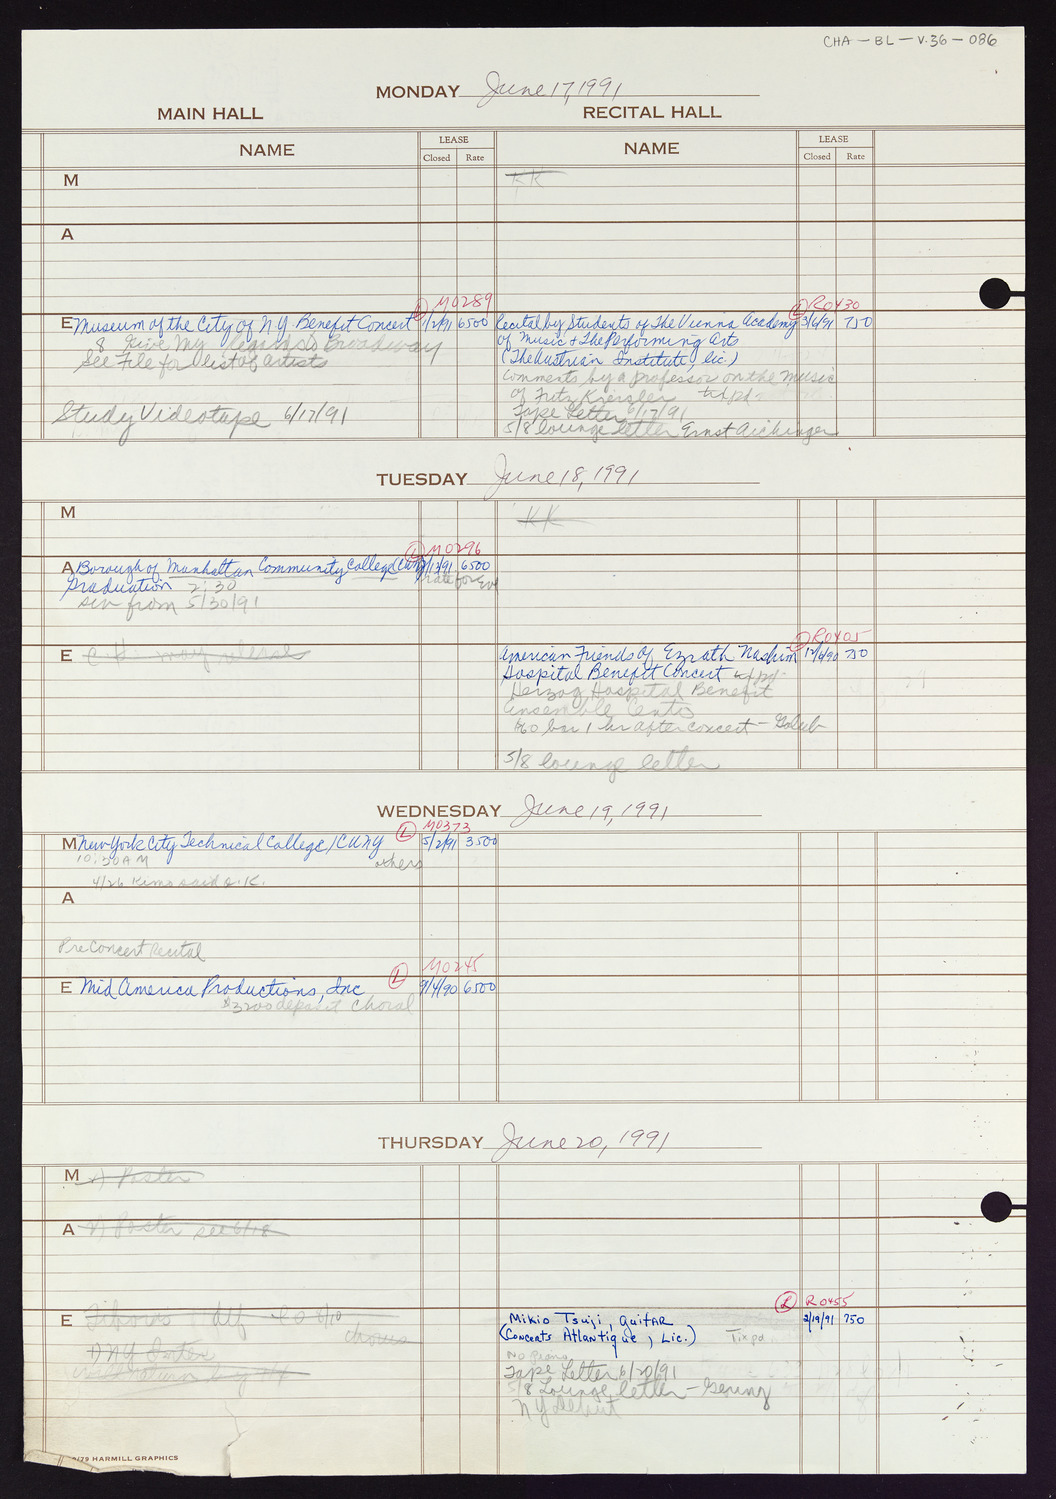 CHA - BL - V.36 - 086
MONDAY June 17, 1991
MAIN HALL
RECITAL HALL
NAME
LEASE
Closed
Rate
NAME
LEASE
Closed
Rate
M
KK
A
L M0289
E Museum of the City of N.Y. Benefit Concert 1/2/91 6500
8 Give My Regards to Broadway
See File for list of artists
Study Videotape 6/17/91
L R0430
Recital by Students of The Vienna Academy 3/6/91 750
of Music & The Performing Arts
(The Austrian Institute, Lic.)
Comments by a professor on the music
of Fritz Kreisler tix pd
Tape Letter 6/17/91
5/8 lounge letter Ernst Aichinger
TUESDAY June 18, 1991
M
KK
L M0296
A Borough of Manhattan Community College/CUNY 2/13/91 6500
Graduation 2:30
rate for Eve
sen from 5/30/91
E
L R0405
American Friends of Ezrath Nashim 750
Hospital Benefit Concert tix pd
Herzog Hospital Benefit
Ensemble
bar 1 hr after concert - Golub
5/8 lounge letter
WEDNESDAY June 19, 1991
L M0373
M New York City Technical College/CUNY 5/2/91 3500
10:30 AM
others
4/26 Kimo said o.K.
A
Pre Concert Recital
L M0245
E Mid America Productions, Inc 9/4/90 6500
$3200 deposit Choral
THURSDAY June 20, 1991
M
A see 6/18
E
chorus
L R0455
Mikio Tsuji, guitar 2/19/91 750
(Concerts Atlantique, Lic.)
Tix pd
No Piano
Tape Letter 6/20/91
5/8 Lounge letter - Gering
NY Debut
/79 HARMILL GRAPHICS